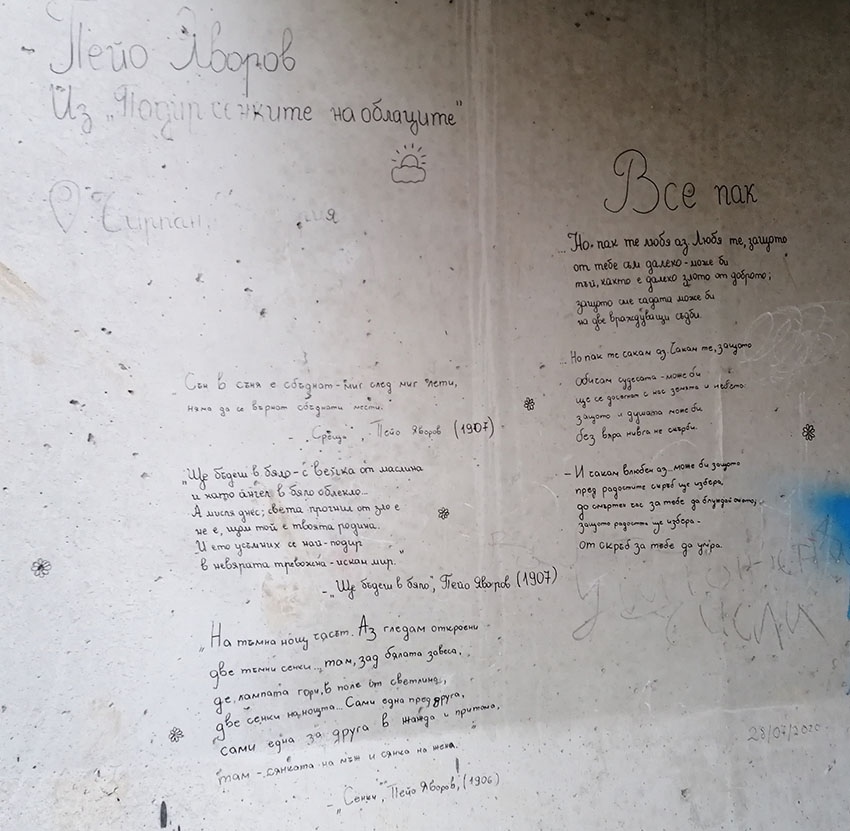 - Пейо Яворов
Из „Подир сенките на облаците"
Чирпан,
Сън в съня е сбъднат - миг след миг лети,
няма да се върнат сбъднати мечти.
- „Среща", Пейо Яворов (1907)
„Ще бъдеш в бяло - с вейка от маслина
и като ангел в бяло облекло...
А мисля днес; света прогнил от зло е
не е, щом той е твоята родина.
И ето усъмних се най-подир
в невярата тревожна - искам мир."
- „Ще бъдеш в бяло", Пейо Яворов (1907)
„На тъмна нощ часът. Аз гледам откроени
две тъмни сенки... там, зад бялата завеса,
де лампата гори, в поле от светлина,
две сенки на нощта... Сами една пред друга,
сами една за друга в жажда и притома,
там - сянката на мъж и сянка на жена.
- „Сенки", Пейо Яворов, (1906)
Все пак
... Но пак те любя аз. Любя те, защото
от тебе съм далеко - може би
тъй, както е далеко злото от доброто;
защото сме чадата може би
на две враждуващи съдби.
... Но пак те чакам аз. Чакам те, защото
обичам чудесата - може би
ще се досегнат с нас земята и небето:
защото и душата може би
без вяра нивга не скърби.
- И чакам влюбен аз... може би защото
пред радостите скръб ще избера,
до смъртен час за тебе да блуждай окото;
защото радостта ще избера -
от скръб за тебе да умра.
28/07/2020